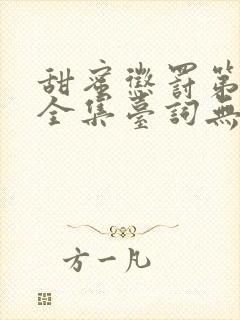 甜蜜懲罰第
全集臺詞無
方一凡